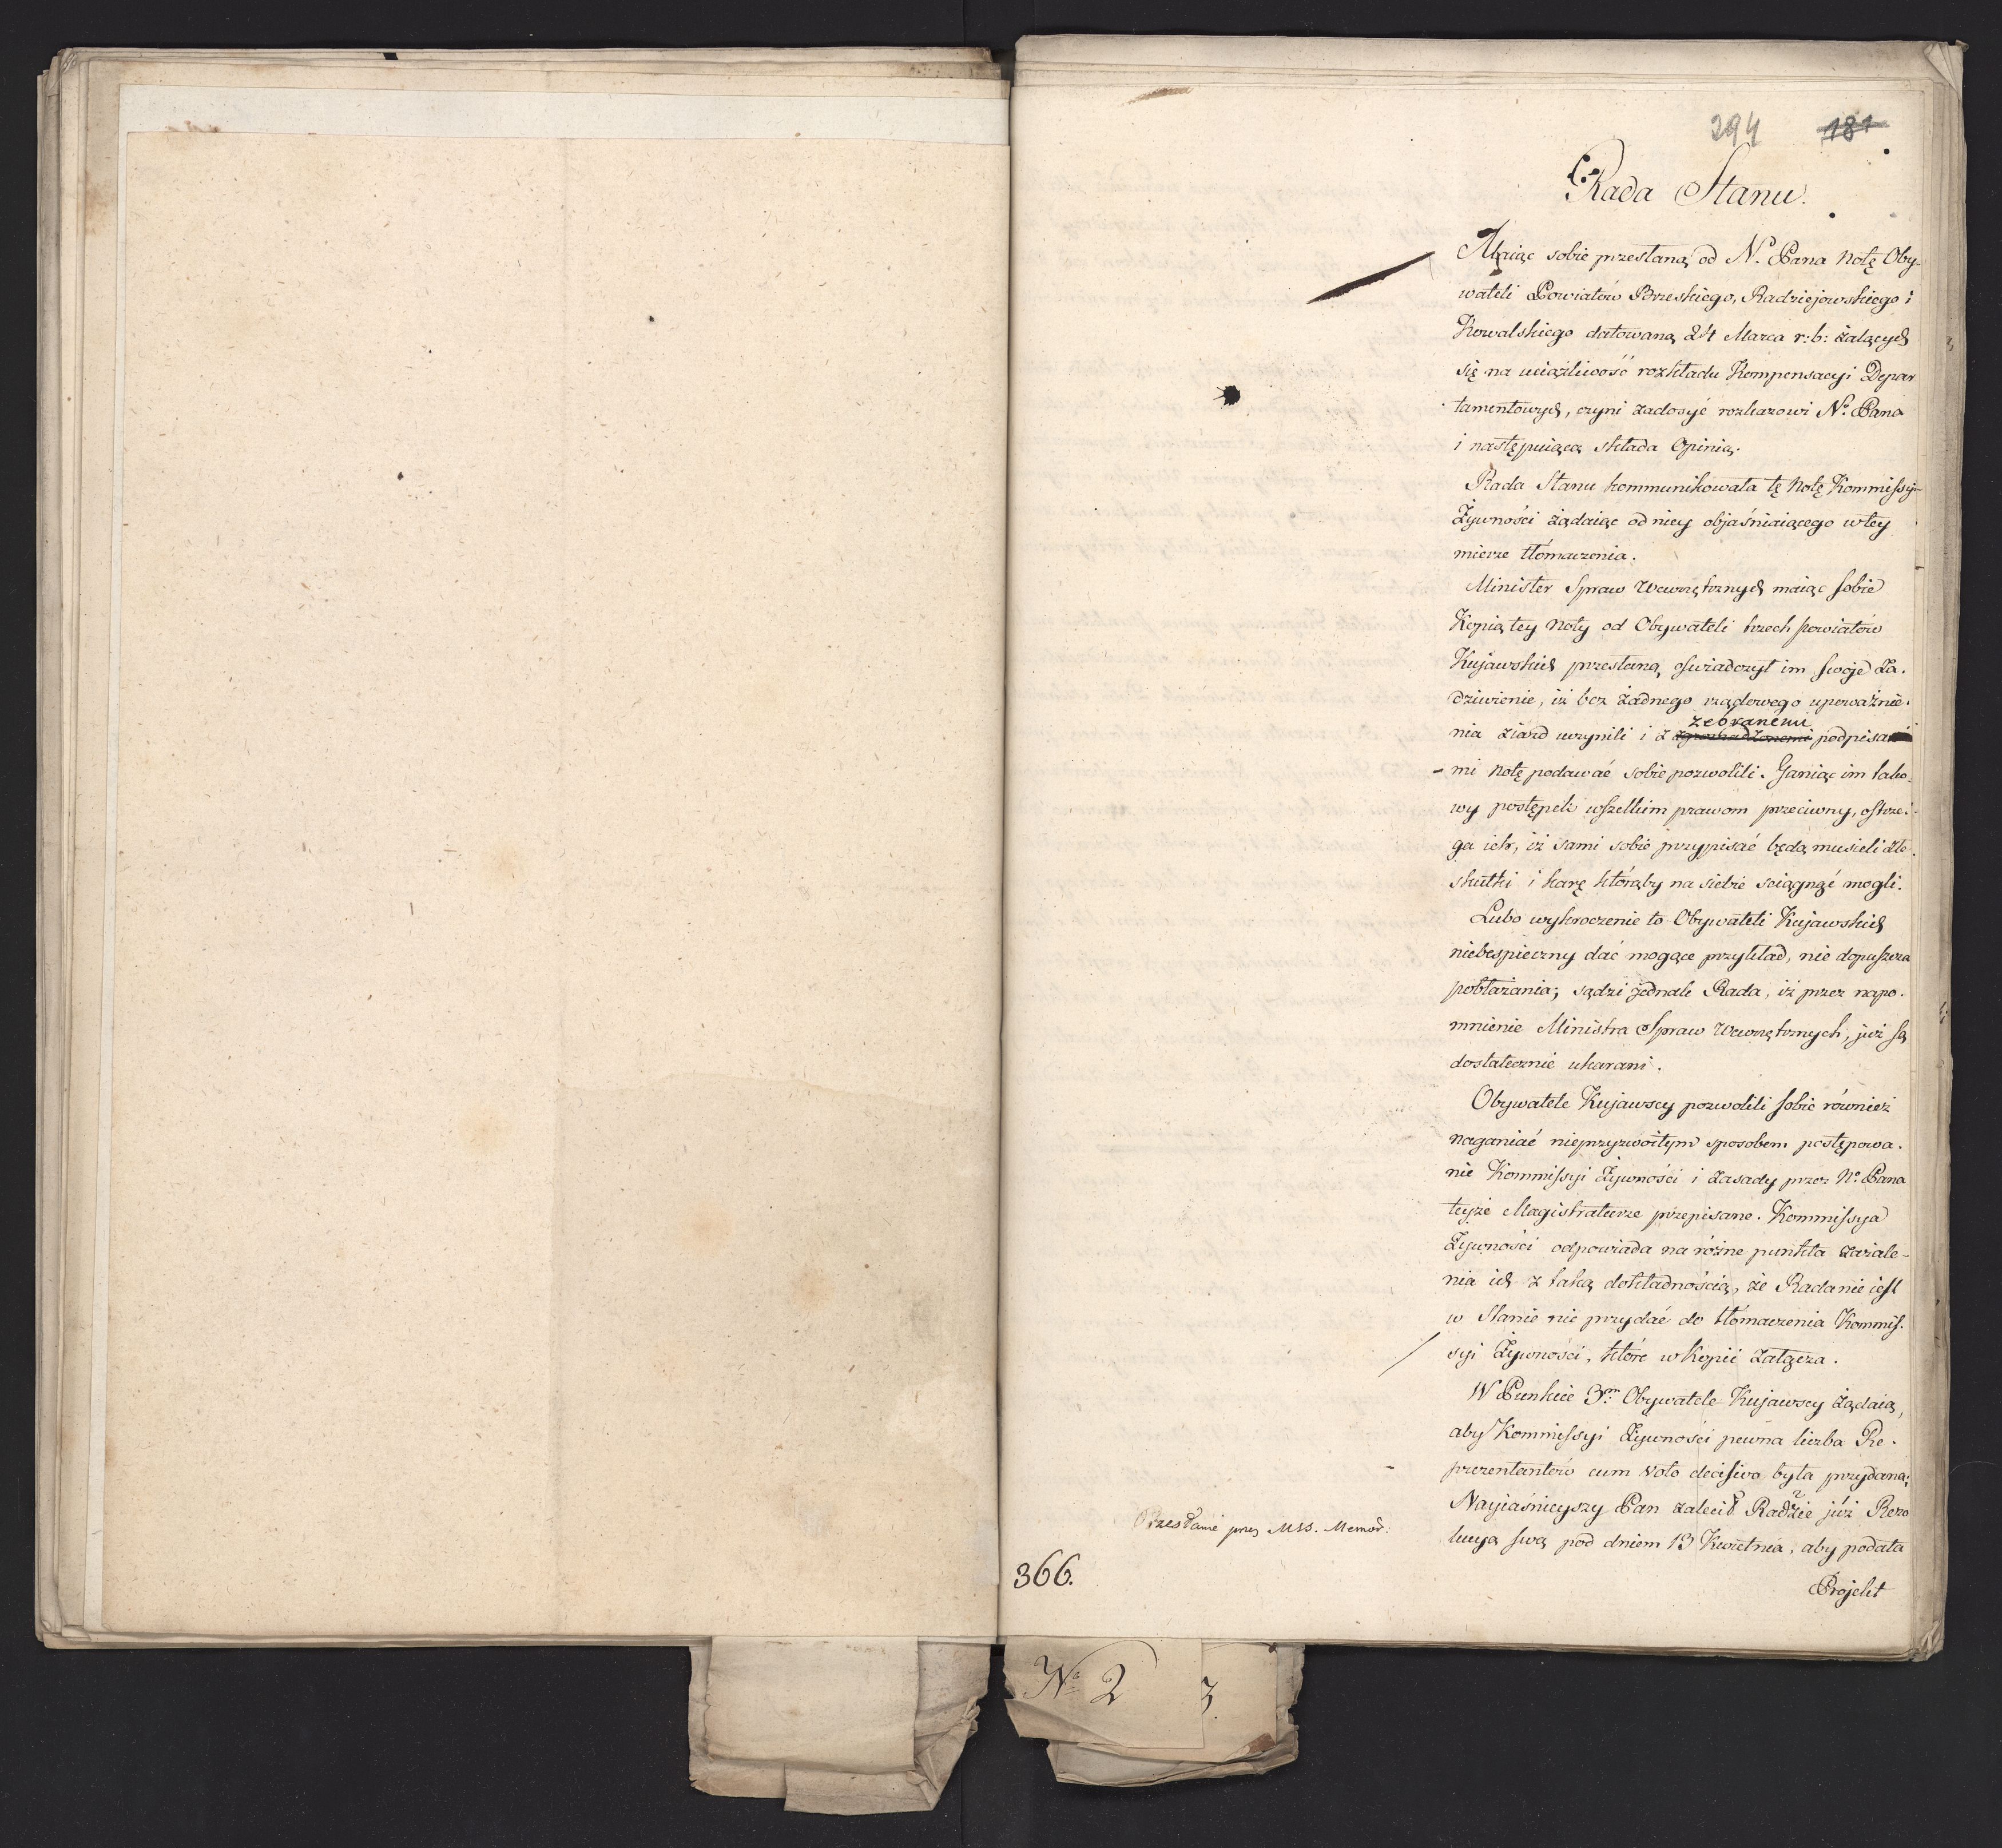 294 181
Rada Stanu.
Maiąc sobie przesłaną od N. Pana Notę Oby-
wateli Powiatów Brzeskiego, Radziejowskiego i
Kowalskiego datowaną 24 Marca r: b: żalących
się na uciążliwość rozkładu Kompensacyi Depar
tamentowych, czyni zadosyć rozkazowi N. Pana
i następuiącą składa Opinią.
Rada Stanu kommunikowała tę Notę Kommissyi
Żywności żądaiąc od niey objaśniaiącego w tey
mierze tłómaczenia.
Minister Spraw Wewnętrznych maiąc sobie
Kopią tey Noty od Obywateli trzech powiatów
Kujawskich przesłaną, oświadczył im swoje za-
dziwienie, iż bez żadnego rządowego upoważnie-
zebranémi
nia ziazd uczynili i z zgromadzonemi podpisa
mi Notę podawać sobie pozwolili. Ganiąc im tako-
wy postępek wszelkim prawom przeciwny, ostrze-
ga ich, iż sami sobie przypisać będą musieli złe
skutki i karę którąby na siebie sciągnąć mogli.
Lubo wykroczenie to Obywateli Kujawskich
niebespieczny dać mogące przykład, nie dopuszcza
pobłażania; sądzi jednak Rada, iż przez napo-
mnienie Ministra Spraw Wewnętrznych, już są
dostatecznie ukarani.
Obywatele Kujawscy pozwolili sobie również
naganiać nieprzyzwoitym sposobem postępowa-
nie Kommissyi Żywności i zasady przez N. Pana
teyże Magistraturze przepisane. Kommissya
Żywności odpowiada na różne punkta zażale-
nia ich z taką dokładnością, że Rada nie iest
w Stanie nic przydać do tłómaczenia Kommis-
syi Żywności, które w Kopii załącza.
W Punkcie 3m Obywatele Kujawscy żądaią,
aby Kommissyi Żywności pewna liczba Re-
prezentantów cum voto decisivo była przydana;
Nayiaśnieyszy Pan zalecił Radzie już Rezo
lucyą swą pod dniem 13 Kwietnia, aby podała
Projekt
Przesłanie przez MSS. Memor:
366.
No 2 3.